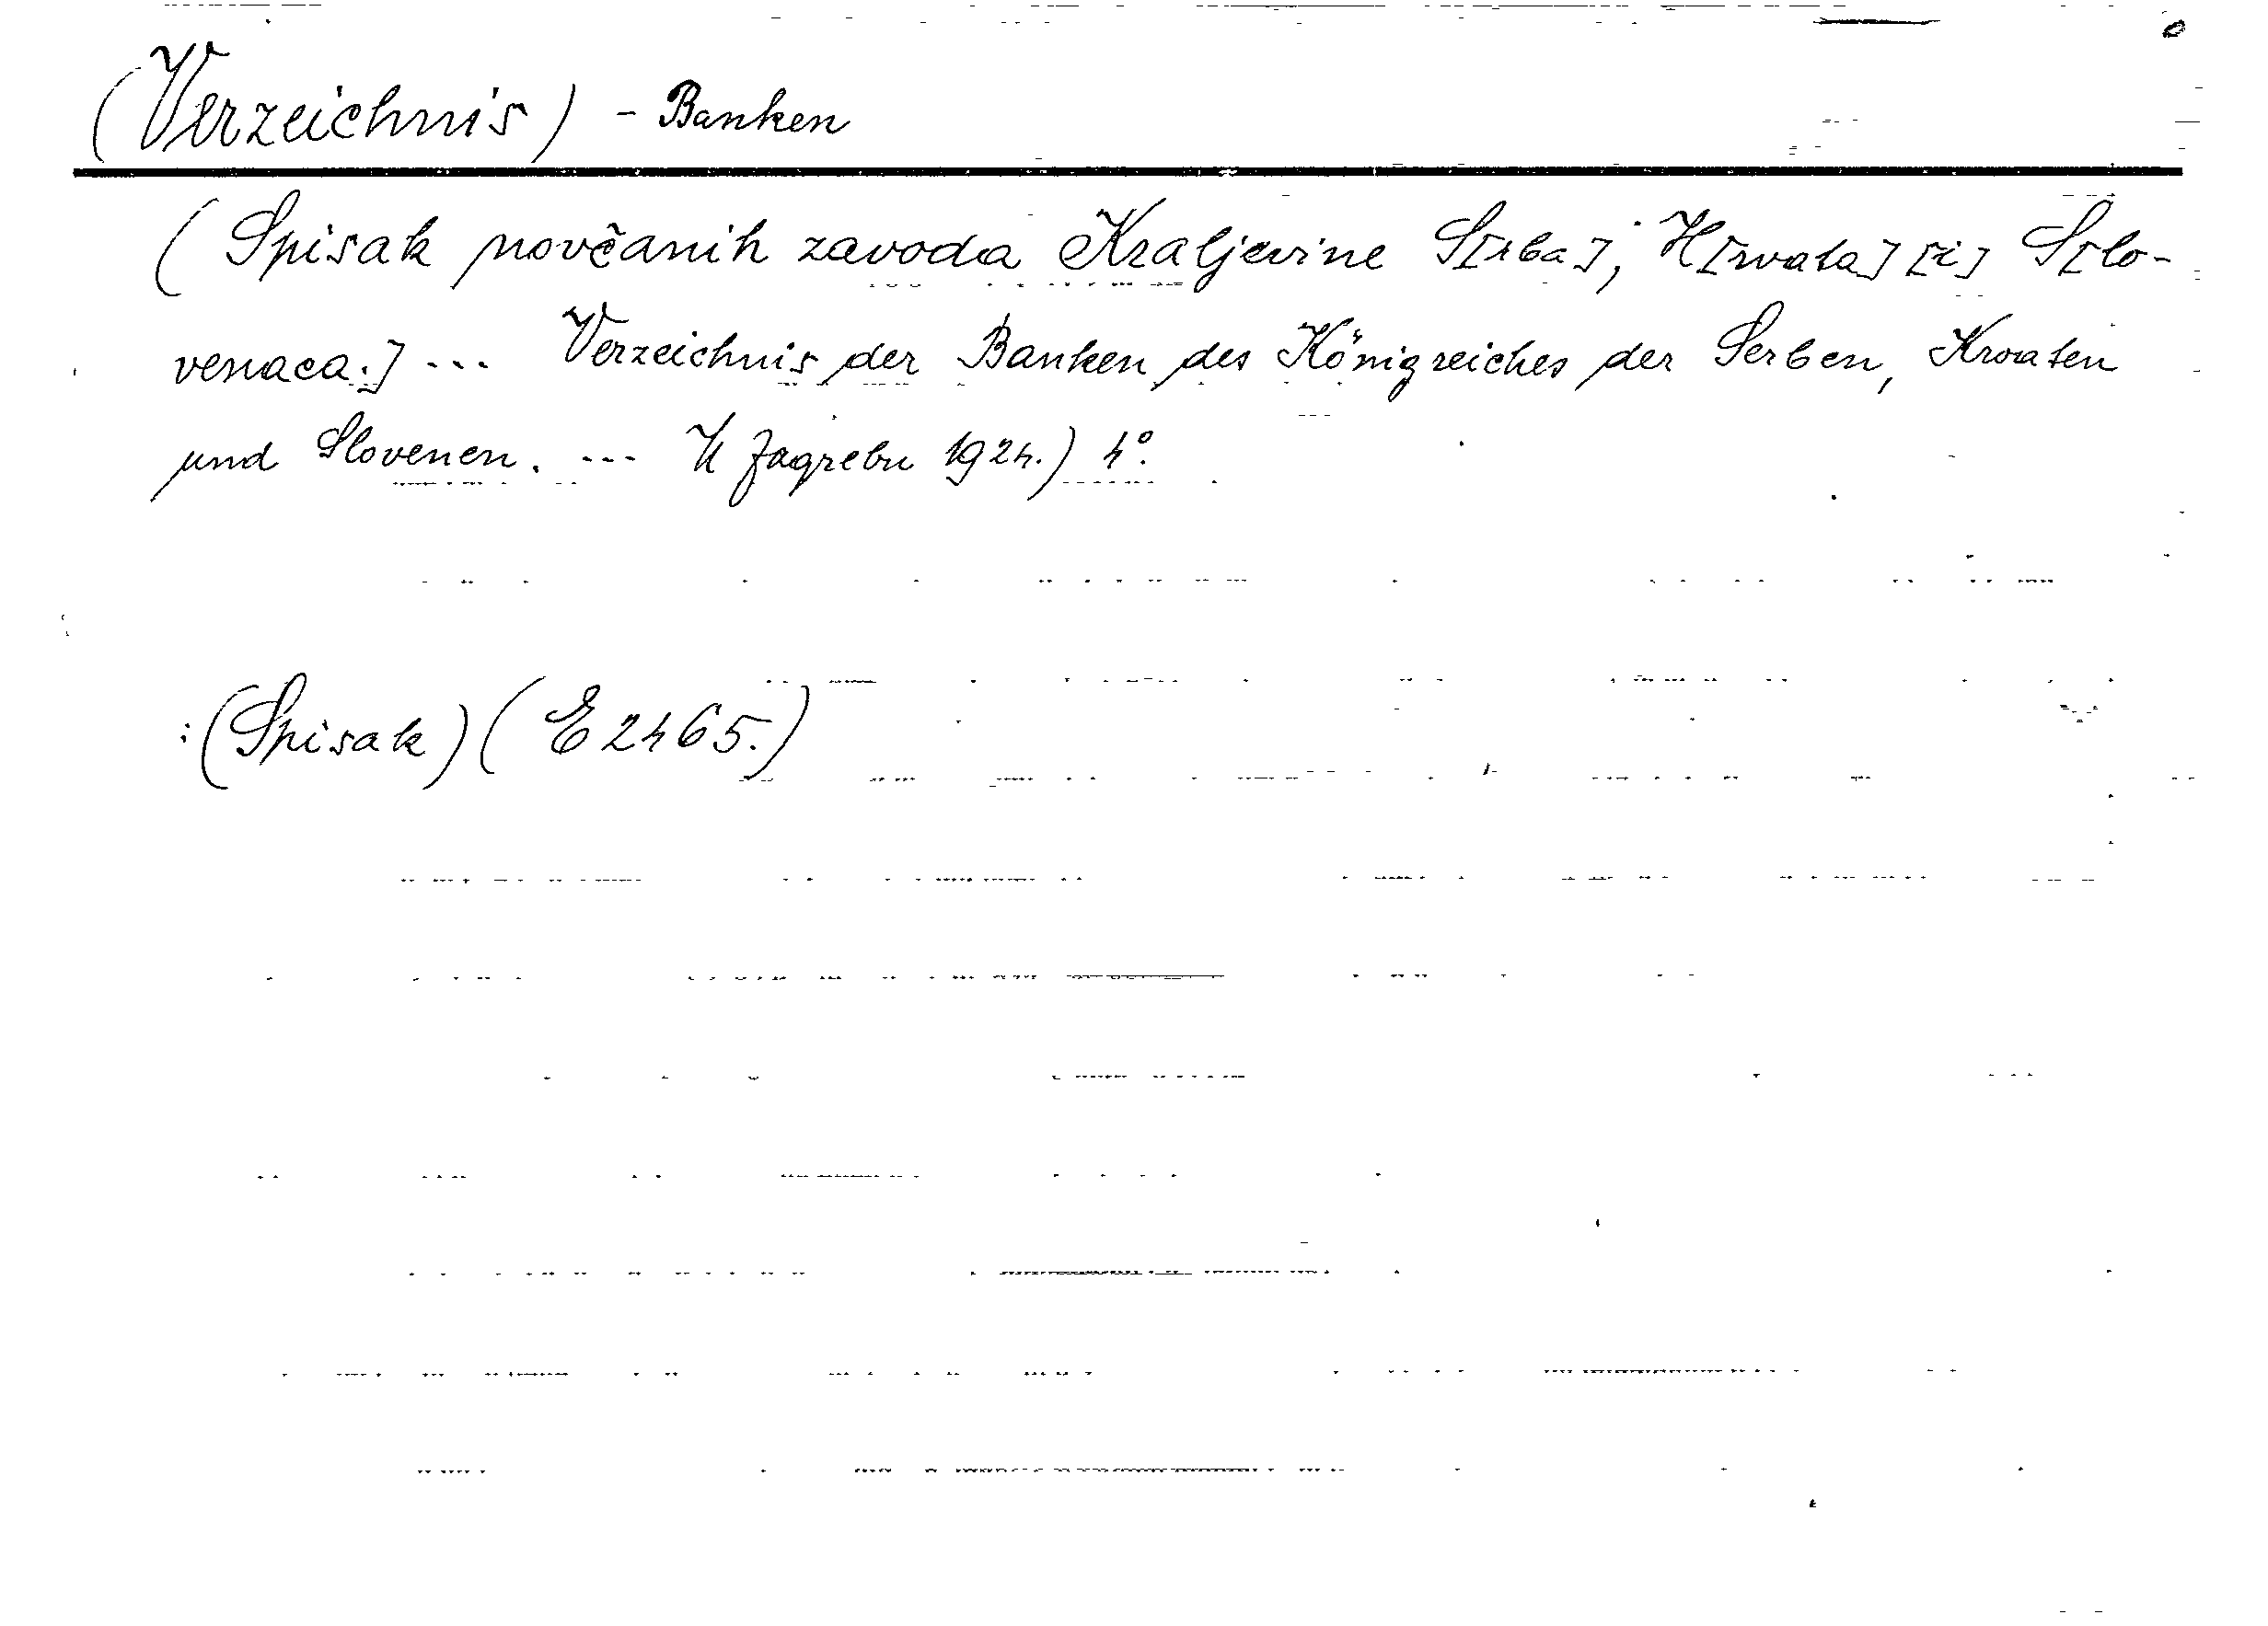 (Verzeichnis) - Banken
(Spisak novčanih zavoda Kraljevine S[rba], H[rvata] [i] S[lo-
venaca.] ... Verzeichnis der Banken des Königreiches der Serben, Kroaten
und Slovenen. ... U Zagrebu 1924.) 4°.
:(Spisak) (E 2465.)